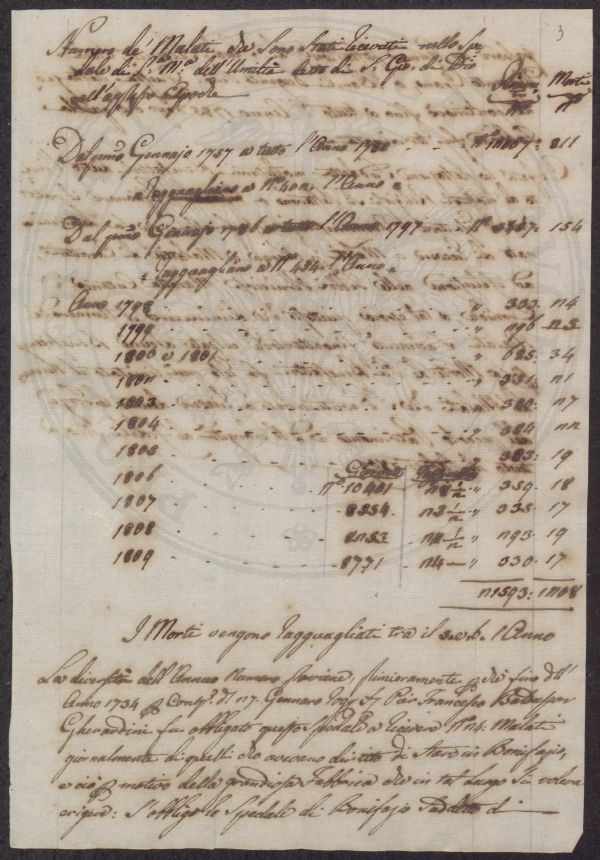 3
Numero de' Malati che sono stati ricevuti nello Spe
dale di S.ª M.ª dell'Umiltà detto di S. Gio. di Dio
nell'appresso Epoche
Morti
N.º N.º
Dal primo Gennajo 1757 a tutto l'Anno 1785 - - 811
Ragguagliano a N.º 402. l'Anno
Dal primo Gennajo 1786 a tutto l'Anno 1797 - - N.º 154
Ragguagliano a N.º 454. l'Anno
Anno 1798 - - - " 333. 24
1799 - - - " 296
1800 e 1801 - - - " 685. 34
1802 - - - " 331. 21
1803 - - - " 380. 27
1804 - - - " 384 22
1805 - - - " 383. 19
1806 - - - N.º 10401 28 1/2 " 359. 18
1807 - - - 8554 23 1/2 " 335. 17
1808 - - - 293 19
1809 - - - 8771 24 — " 330. 17
21593: 1208
I Morti vengono ragguagliati tra il l'Anno
La diversità dell'Annuo Numero proviene, primieramente che fino dell'
Anno 1734 27. Gennaro Pier Francesco
Gherardini fu obbligato questo Spedale a ricevere N.º Malati
giornalmente di quelli che avevano diritto di stare in Bonifazio,
e ciò motivo della grandiosa Fabbrica che in tal luogo si voleva
erigere: S'obbligò lo Spedale di Bonifazio di